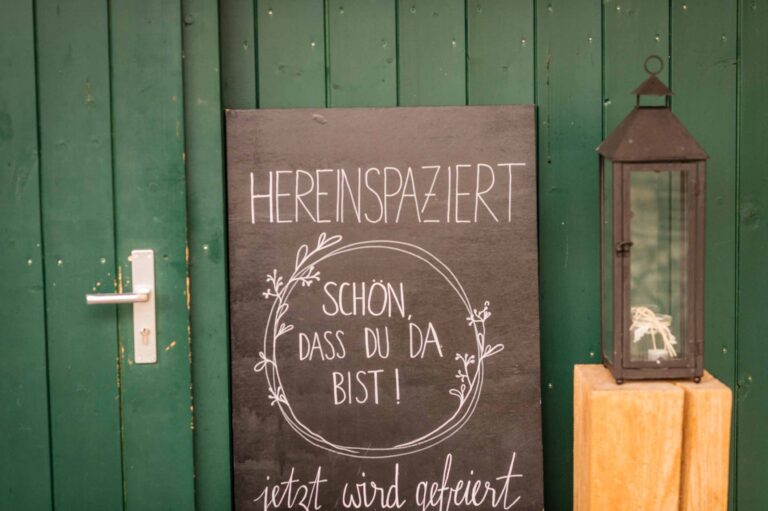 HEREINSPAZIERT
SCHÖN,
DASS DU DA
BIST!
jetzt wird gefeiert